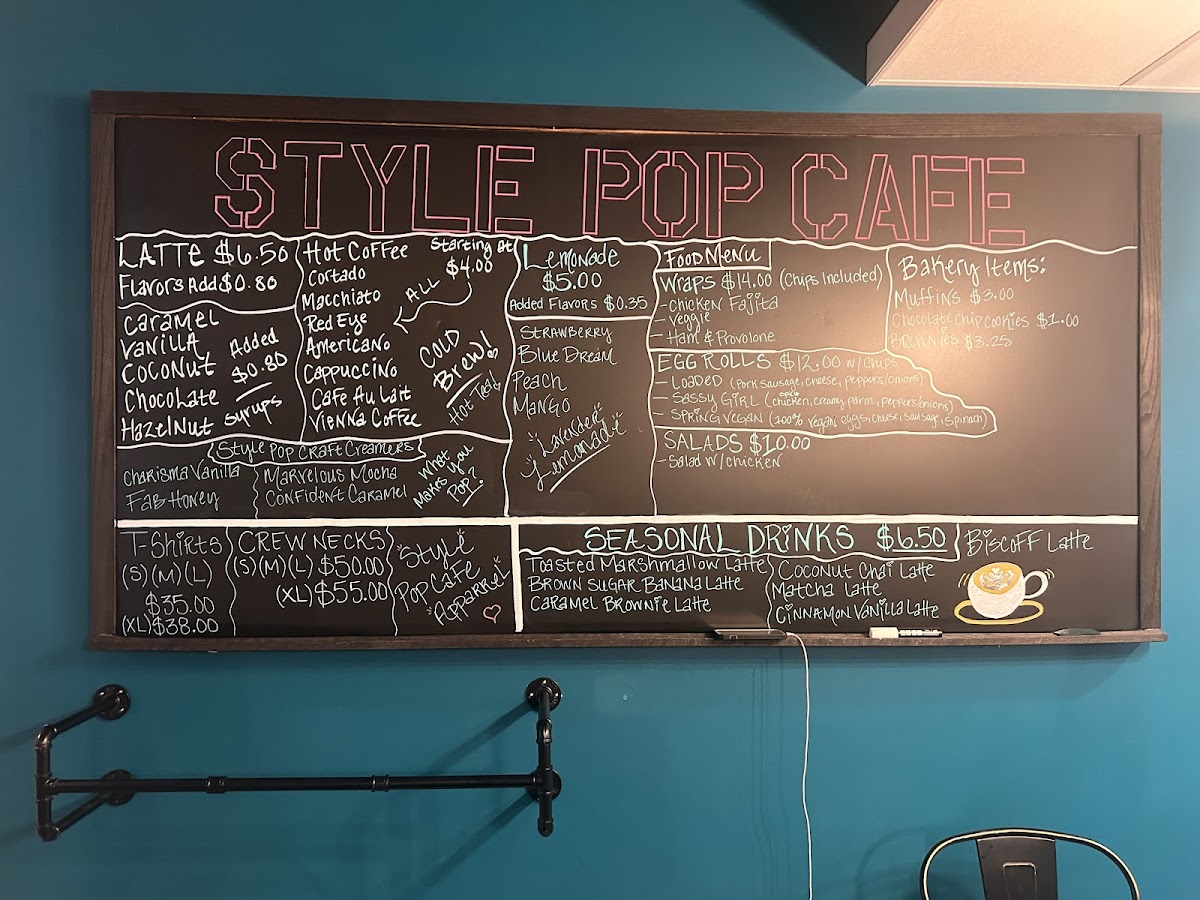 STYLE POP CAFE
LATTE $6.50
Flavors Add $0.80
Caramel
Vanilla
Coconut
Chocolate
Hazelnut
Added
$0.80
syrups
Hot Coffee
Starting at
$4.00
ALL
Cortado
Macchiato
Red Eye
Americano
Cappuccino
Cafe Au Lait
Vienna Coffee
COLD
Brew!
Hot Tea!
Style Pop Craft Creamers
Charisma Vanilla
Fab Honey
Marvelous Mocha
Confident Caramel
What
Makes you
Pop?
Lemonade
$5.00
Added Flavors $0.35
Strawberry
Blue Dream
Peach
Mango
"Lavender"
Lemonade"
Food Menu
Wraps $14.00 (Chips Included)
- Chicken Fajita
- Veggie
- Ham & Provolone
EGG ROLLS $12.00 w/chips
- Loaded (Pork sausage, cheese, peppers/onions)
- Sassy Girl (chicken, creamy parm, peppers/onions)
- Spring Vegan (100% vegan eggs, cheese, sausage, spinach)
SALADS $10.00
- Salad w/chicken
Bakery Items:
Muffins $3.00
Chocolate chip cookies $1.00
Brownies $3.25
T-Shirts
(S)(M)(L)
$35.00
(XL) $38.00
CREW NECKS
(S)(M)(L) $50.00
(XL) $55.00
"Style
Pop Cafe
Apparel"
SEASONAL DRINKS $6.50
Toasted Marshmallow Latte
Brown Sugar Banana Latte
Caramel Brownie Latte
Coconut Chai Latte
Matcha Latte
Cinnamon Vanilla Latte
Biscoff Latte